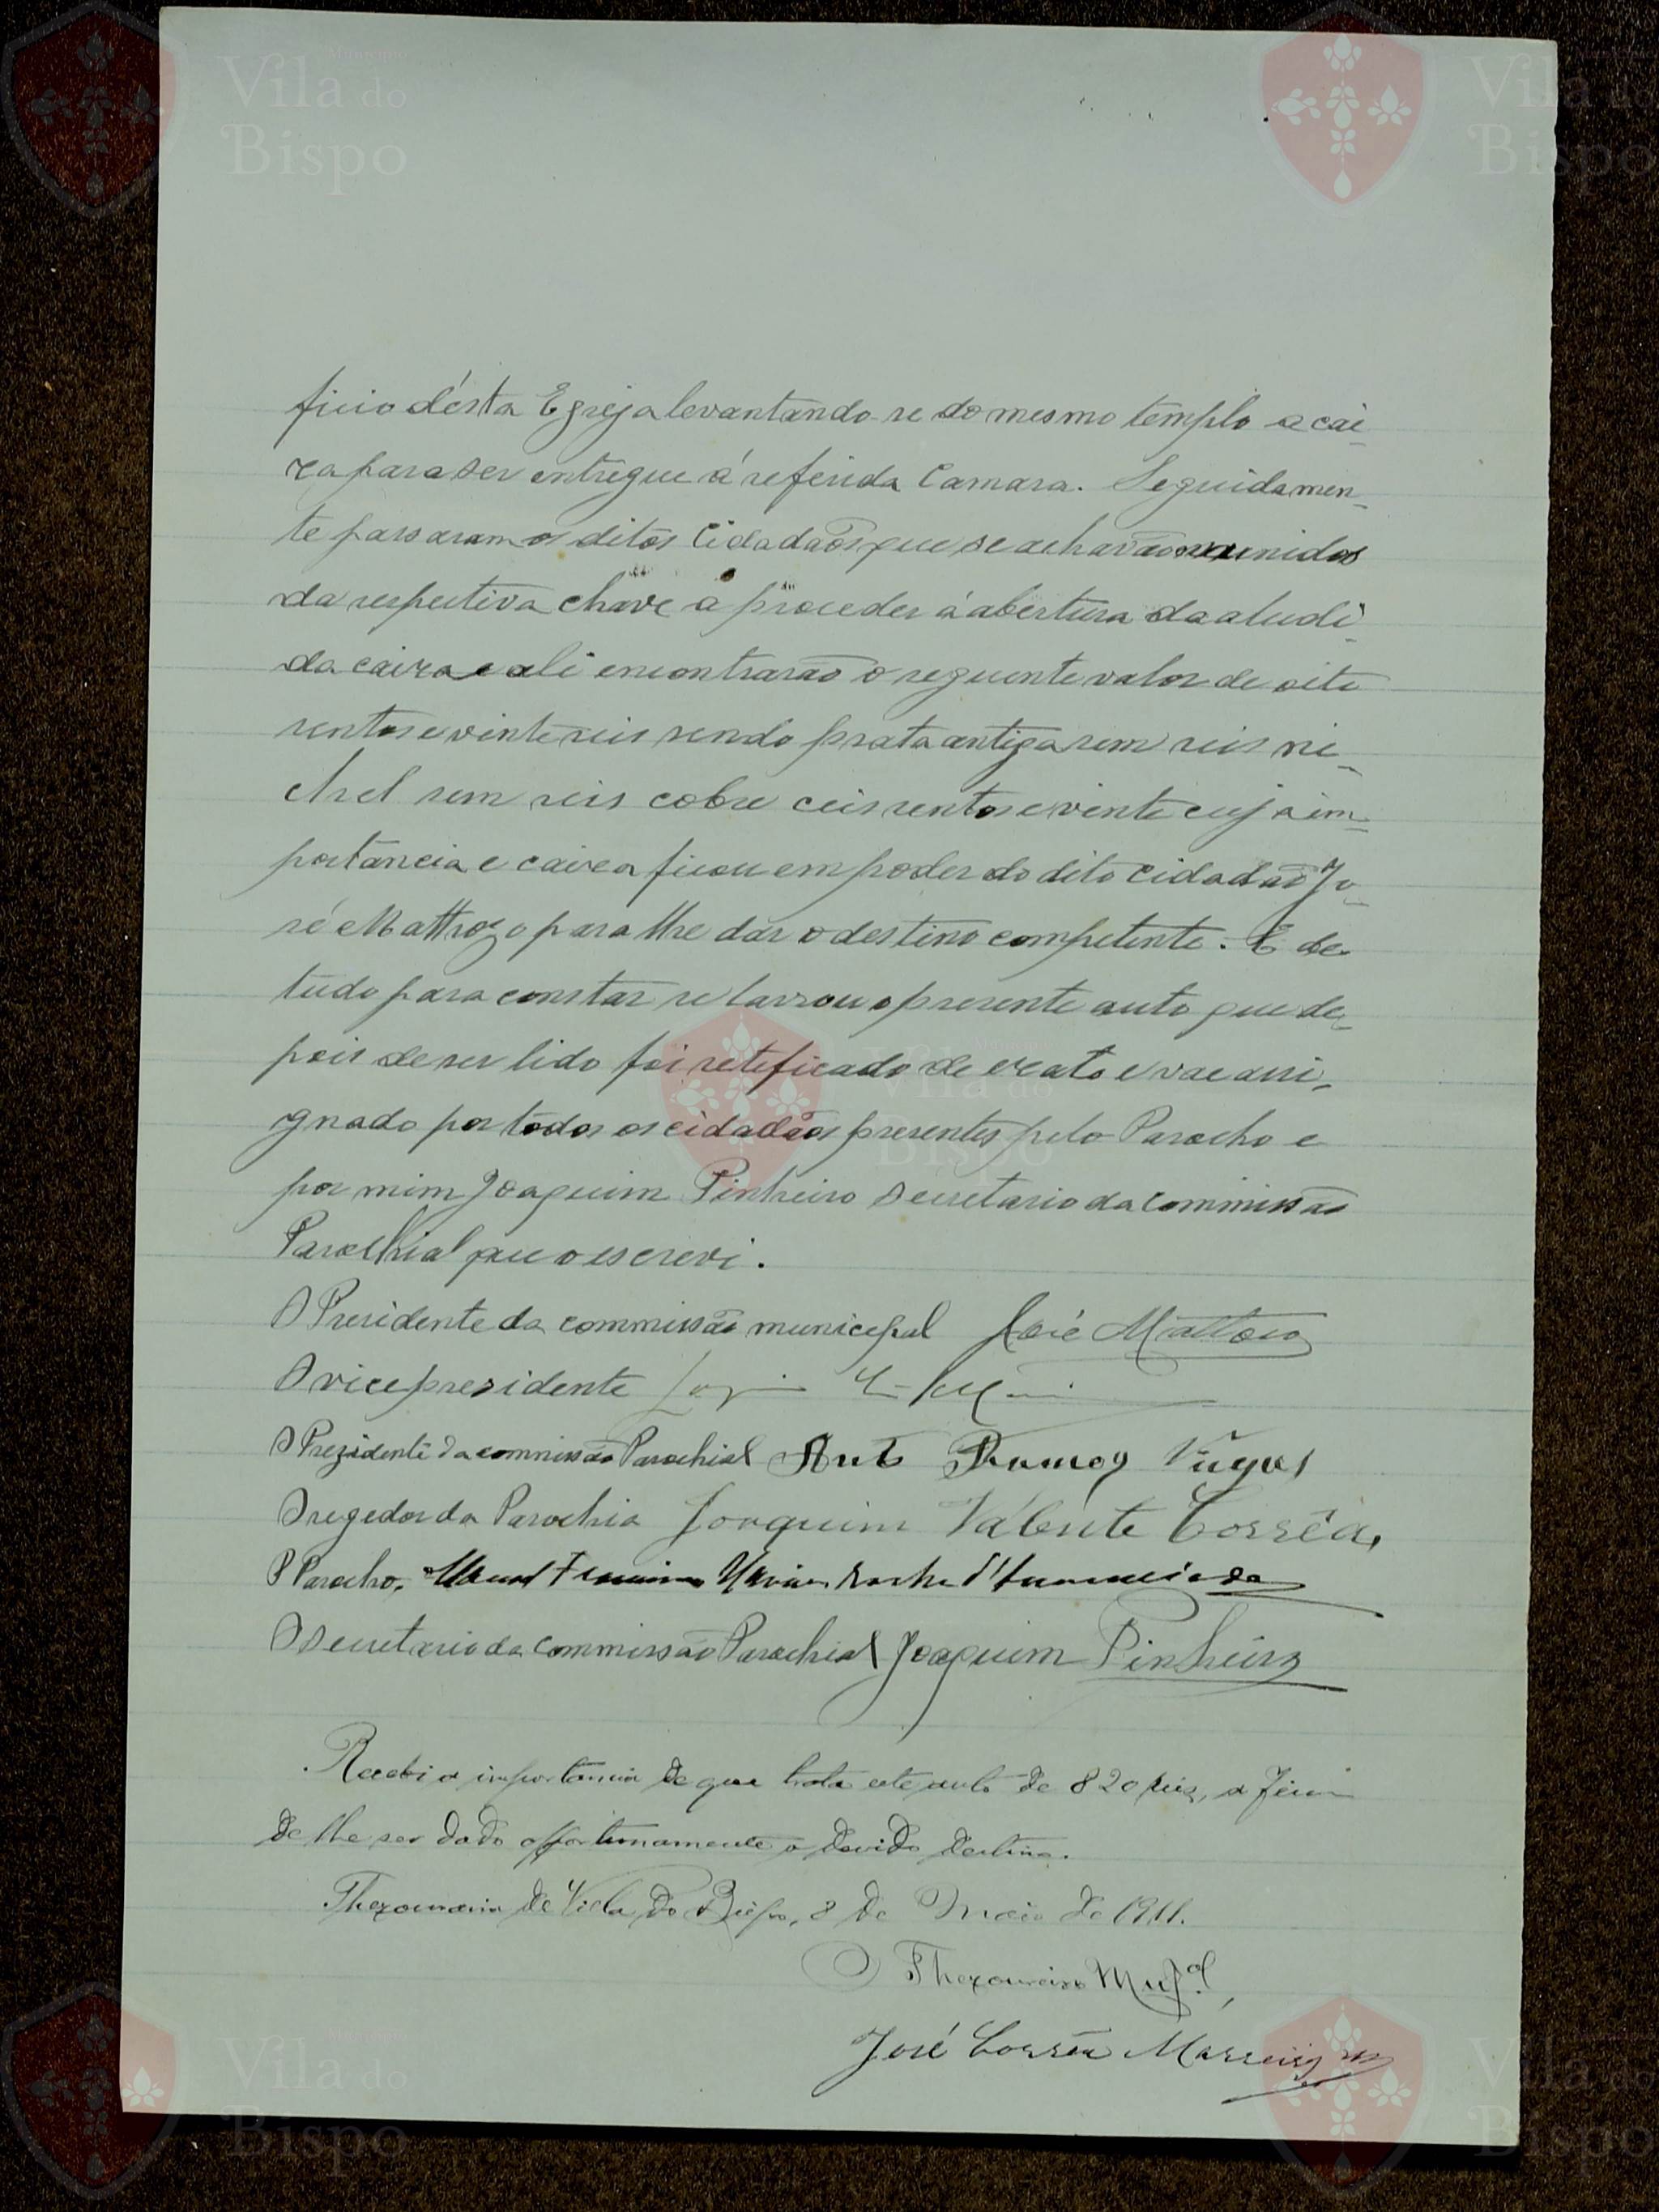 Município
Vila do
Bispo
ficio désta Egreja levantando-se do mesmo templo a cai-
xa para ser entregue á referida Camara. Seguidamen-
te passaram os ditos Cidadãos que se achavão munidos
da respectiva chave a proceder á abertura da aludi-
da caixa e ali encontrarão o seguinte valor de oito
sentos e vinte reis sendo prata antiga sem reis ni-
chel sem reis cobre ceis sentos e vinte cuja im-
portância e caixa ficou em poder do dito cidadão Jo-
sé Mattozo para lhe dár o destino competente. E de
tudo para constar se lavrou o presente auto que de-
pois de ser lido foi retificado de exato e vae assi-
gnado por todos os cidadãos presentes pelo Parocho e
por mim Joaquim Pinheiro Secretario da commissão
Parochial que o escrevi.
O Presidente da commissão municipal José Mattoso
O vicepresidente
O Prezidente da commissão Parochial Anto Ramos
O regedor da Parochia Joaquim Valente Corrêa,
O Parocho, d'Annunciada
O Secretario da Commissão Parochial Joaquim Pinheiro
Recebi a importancia de que trata este auto de 820 reis, a fim
de lhe ser dado opportunamente o devido destino.
Thezouraria de Villa do Bispo, 8 de Maio de 1911.
O Thezoureiro Mupal,
José Corrêa